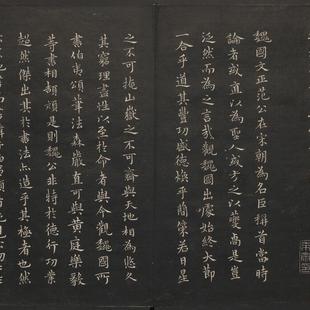 魏國文正范公在宋朝為名臣稱首當時
論者或直以為聖人或方之以夔卨是豈
泛然而為之言哉觀魏國出處始終大節
一合乎道其豐功盛德煥乎簡策若日星
之不可掩山嶽之不可齊與天地相為悠久
其窮理盡性以至於命者與今觀魏國所
書伯夷頌筆法森嚴直可與黃庭樂毅
等書相頡頏是則魏公非特於德行功業
超然傑出其於書法亦造乎其極者也然